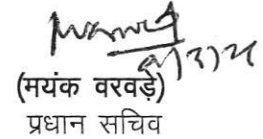 (मयंक वरवड़े)
प्रधान सचिव